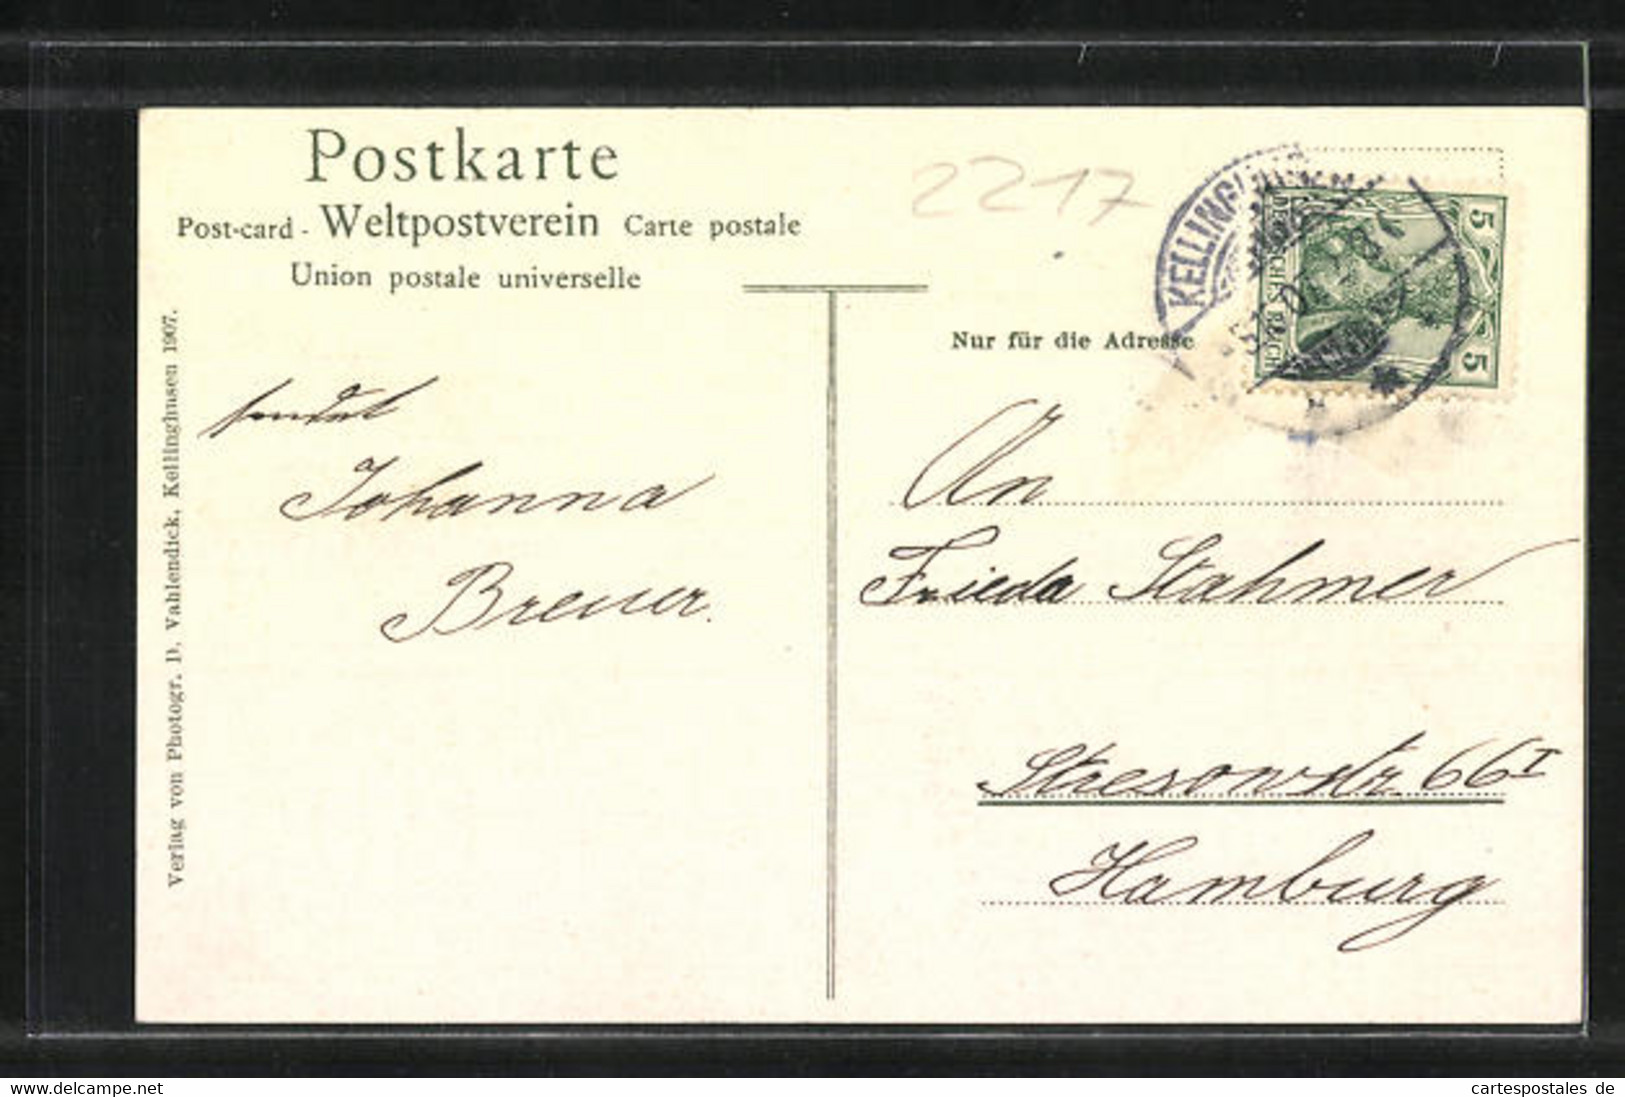 Postkarte
Post-card - Weltpostverein Carte postale
Union postale universelle
2217
Nur für die Adresse
5 DEUTSCHES REICH 5
sendet
Johanna
Breuer.
An
Frieda Stahmer
Stresowstr. 66 I
Hamburg
Verlag von Photogr. D. Vahlendick, Kellinghusen 1907.
www.delcampe.net
cartespostales de